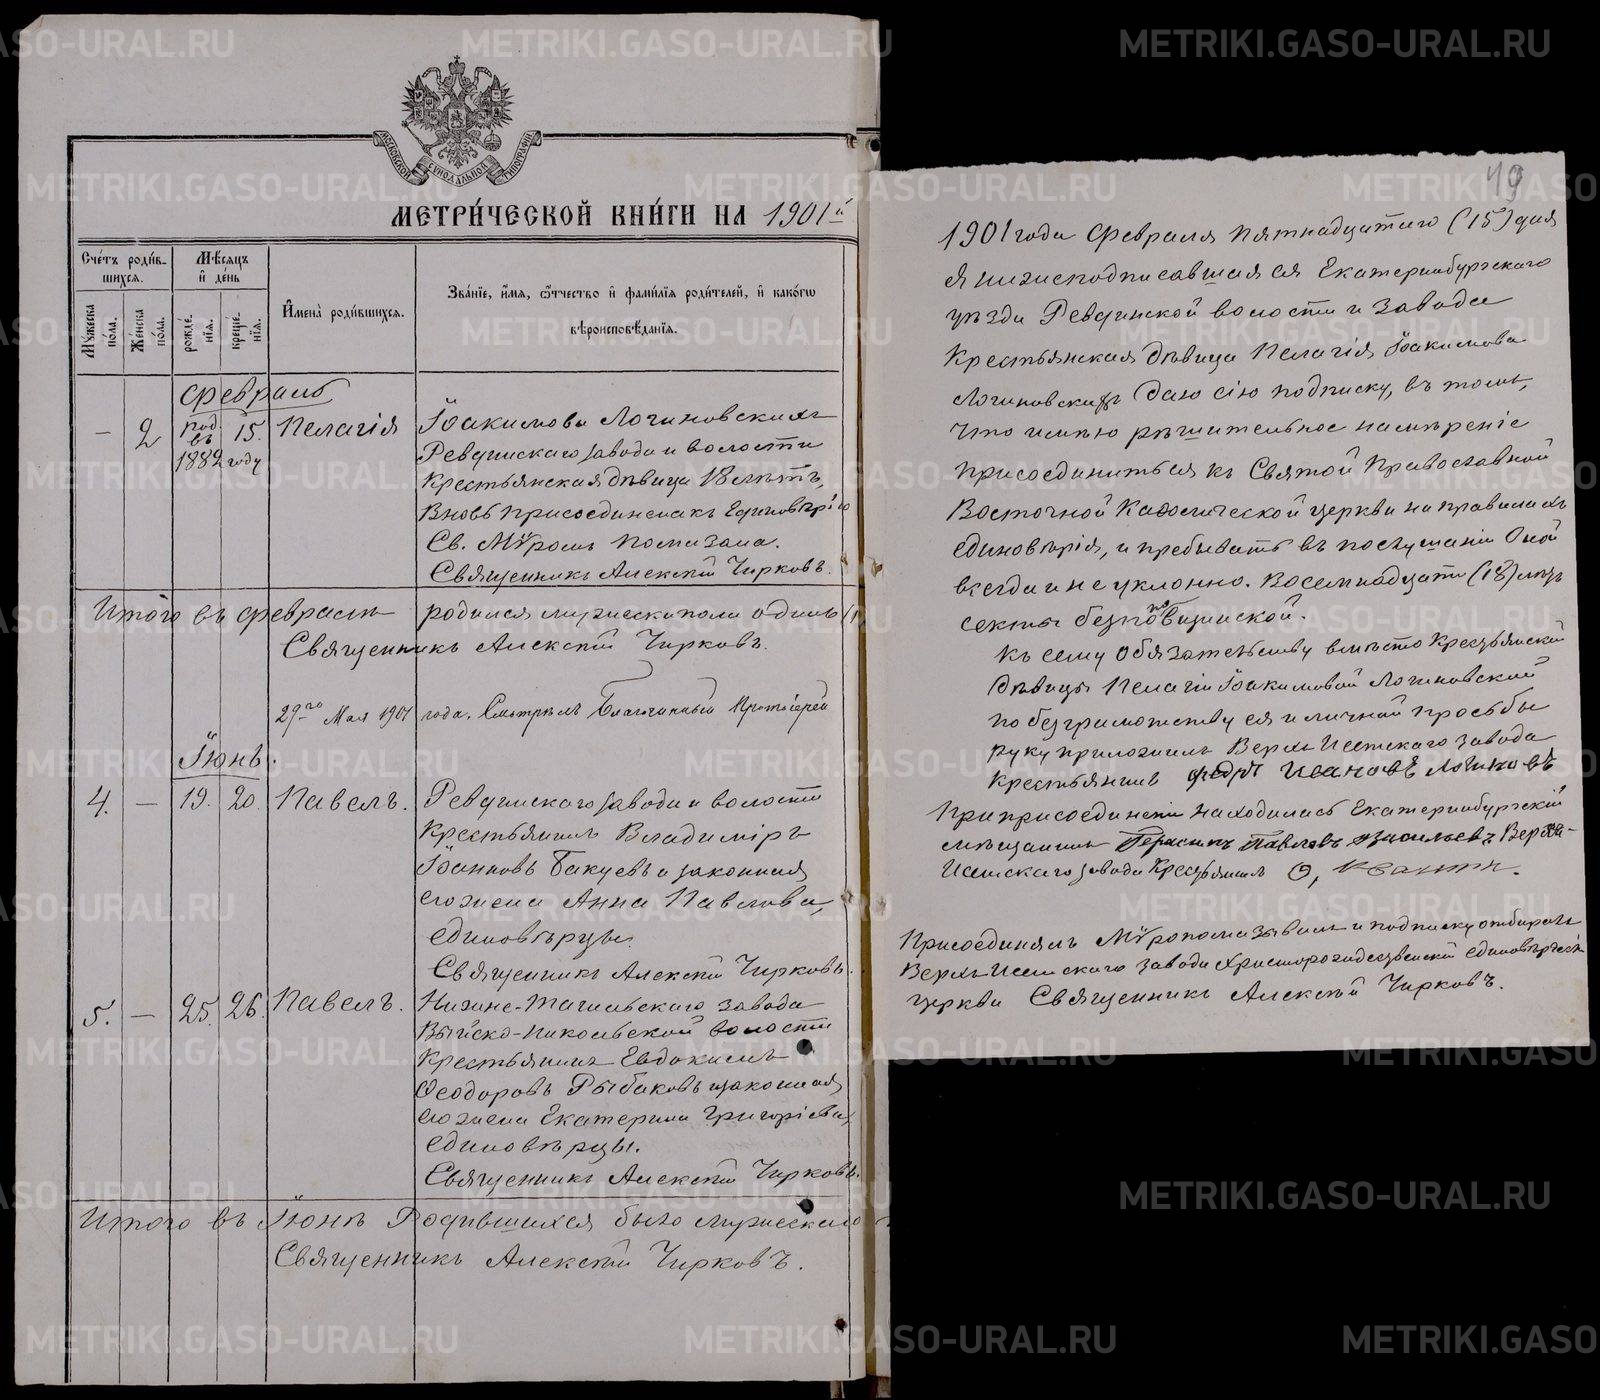 МЕТРИ́ЧЕСКОЙ КНИ́ГИ НА 1901й
Сче́тъ роди́вшихся.
Мѣ́сяцъ и де́нь
Имена̀ роди́вшихся.
Зва́нїе, и́мя, ѻ҆́тчество и҆ фами́лїя роди́телей, и҆ како́гѡ вѣроисповѣ́данїя.
Му́жеска по́ла.
Же́нска по́ла.
рожде́нїя.
креще́нїя.
Февраль
— 2 род. въ 1882 году 15. Пелагія
Іоакимова Логиновскихъ
Ревдинскаго завода и волости
крестьянская дѣвица 18 лѣтъ,
вновь присоединена къ Единовѣрію
Св. Мѵромъ помазана.
Священникъ Алексій Чирковъ.
Итого въ феврале родился мужеска пола одинъ (1
Священникъ Алексій Чирковъ.
29-го Мая 1901 года. Смотрѣлъ Благочинный Протоіерей
Іюнь.
4. — 19. 20. Павелъ.
Ревдинскаго завода и волости
крестьянинъ Владиміръ
Іоанновъ Бакуевъ и законная
его жена Анна Павлова,
единовѣрцы.
Священникъ Алексій Чирковъ.
5. — 25. 26. Павелъ.
Нижне-Тагильскаго завода
Выйско-Никольской волости
крестьянинъ Евдокимъ
Ѳеодоровъ Рыбаковъ и законная
его жена Екатерина Григоріева,
единовѣрцы.
Священникъ Алексій Чирковъ.
Итого въ Іюнѣ Родившихся было мужескаго
Священникъ Алексій Чирковъ.
49
1901 года Февраля пятнадцатаго (15) дня
я нижеподписавшаяся Екатеринбургскаго
уѣзда Ревдинской волости и завода
Крестьянская дѣвица Пелагія Іоакимова
Логиновскихъ даю сію подписку, въ томъ,
что имѣю рѣшительное намѣреніе
присоединиться къ Святой Православной
Восточной Каѳолической церкви на правилахъ
единовѣрія, и пребывать въ послушаніи Оной
всегда и неуклонно. Восемнадцати (18) лѣтъ
секты безпоповщинской.
Къ сему обязательству вмѣсто Крестьянской
дѣвицы Пелагіи Іоакимовой Логиновской
по безграмотству ея и личной просьбы
руку приложилъ Верхъ-Исетскаго завода
крестьянинъ Федръ Ивановъ Логиновъ
При присоединеніи находились Екатеринбургскій
мѣщанинъ Герасимъ Павловъ Васильевъ, Верхъ-
Исетскаго завода Крестьянинъ
Присоединялъ Мѵропомазывалъ и подписку отбиралъ
Верхъ-Исетскаго завода Христорождественской единовѣрческ.
церкви Священникъ Алексій Чирковъ.